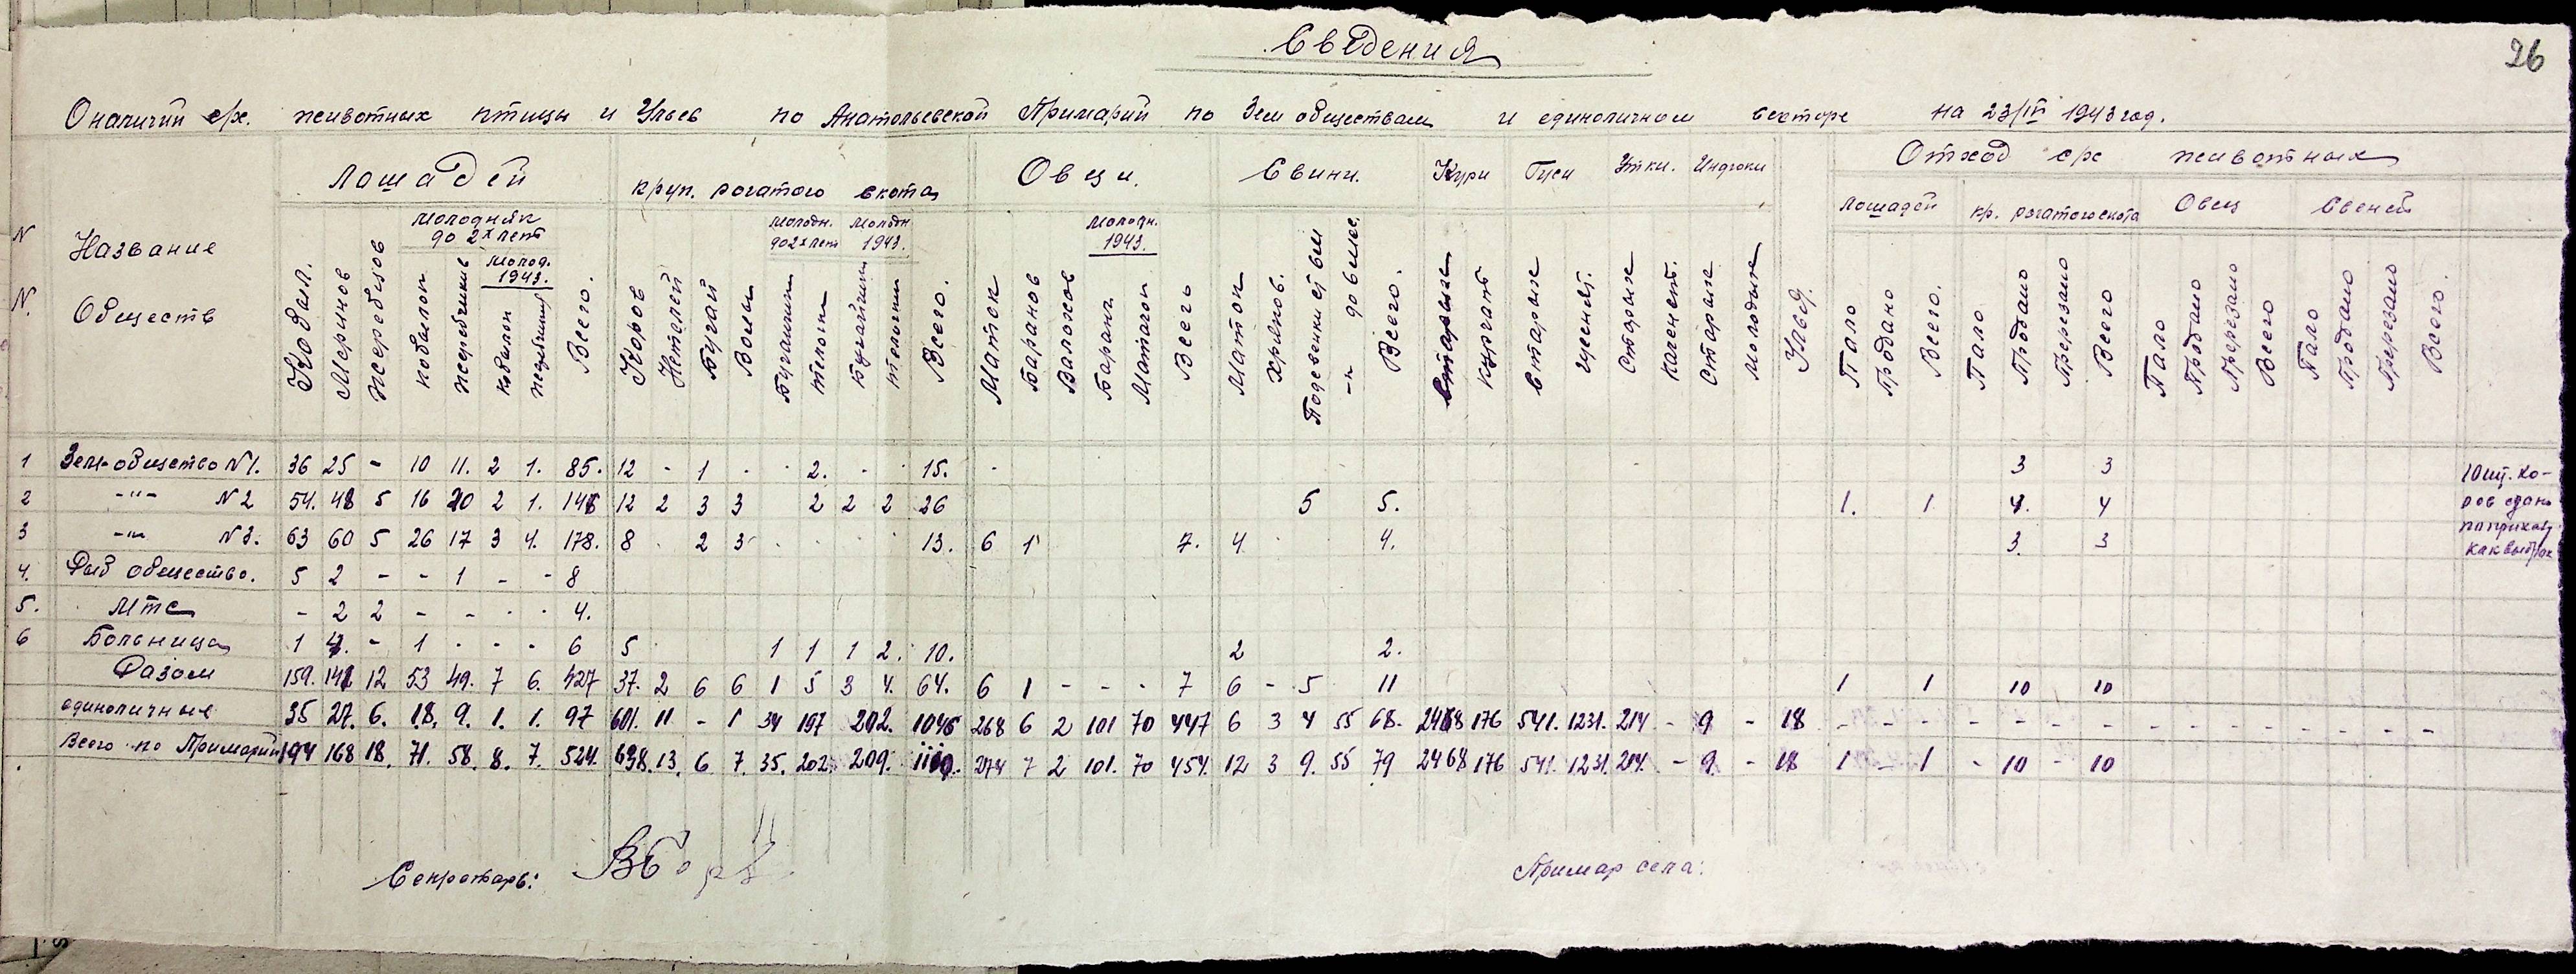 26
Сведения
О наличии с/х. животных птицы и Ульев по Анатольевской Примарии по Зем обществам и единоличном секторе на 23/IV 1943 год.
N N. Название Обществ
Лошадей
круп. рогатого скота
Овци.
Свини.
Кури Гуси Утки. Индюки
Отход с/х животных
Лошадей кр. рогатого скота Овец Свеней
молодняк до 2х лет
молод. 1943.
Молодн. до 2х лет Молодн 1943.
Молодн. 1943.
Кобыл. Меринов Жеребцов кобылок жеребчиков кобылок жеребчиков Всего.
Коров Нетелей Бугай Волы Бугайчики телочки Бугайчики телочки Всего.
Маток Баранов Валохов Баранч. Маточки Всего
Маток Хряков. до 6 мес. Всего.
Старые Старые Старые Старые Молодые Ульев.
Пало Продано Всего.
Пало Продано Пререзано Всего
Пало Продано Пререзано Всего
Пало Продано Пререзано Всего.
1 Зем-общество N1. 36 25 - 10 11. 2 1. 85. 12 - 1 - - 2. - - 15. - 3 3
2 -"- N2 54. 48 5 16 20 2 1. 146 12 2 3 3 2 2 2 26 5 5. 1. 1 4. 4
3 -"- N3. 63 60 5 26 17 3 4. 178. 8 2 3 13. 6 1 7. 4 4. 3. 3
10 шт. ко-
ров сдано
по приказу
как
4. Рыб общество. 5 2 - - 1 - - 8
5. Мтс - 2 2 - - - - 4.
6 Больница 1 4. - 1 - - - 6 5 1 1 1 2. 10. 2 2.
Разом 159. 141 12 53 49. 7 6. 427 37. 2 6 6 1 5 3 4. 64. 6 1 - - - 7 6 - 5 11 1 1 10 10
единоличные 35 27. 6. 18. 9. 1. 1. 97 601. 11 - 1 34 197 202. 1046 268 6 2 101 70 447 6 3 4 55 68. 2468 176 541. 1231. 214 - 9 - 18 - - - - - - - - - - - - - - -
Всего по Примарии 194 168 18. 71. 58. 8. 7. 524. 638. 13. 6 7. 35. 202. 209. 1110. 274 7 2 101. 70 454. 12 3 9. 55 79 2468 176 541. 1231. 214. - 9. - 18 1 - 1 - 10 - 10
Секретарь:
Примар села: